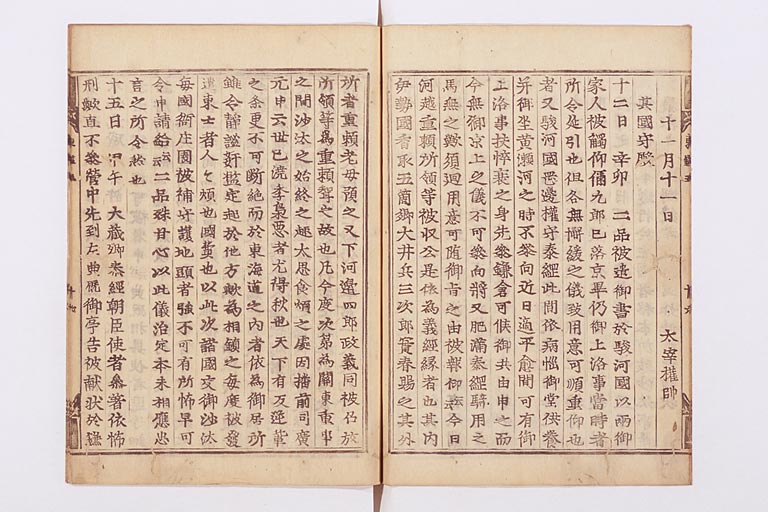 其国守殿
十一月十一日
太宰権帥
十二日 辛卯 二品被遣御書於駿河國以西御
家人被觸仰偁九郎已落京畢仍御上洛事當時者
所令延引也但各無懈緩之儀致用意可順重仰也
者又駿河國岡邊権守泰經此間依病悩御堂供養
并御坐黄瀬河之時不参向近日適平愈間可有御
上洛事扶悴衰之身先参鎌倉可候御共由申之而
今無御京上之儀不可参向將又肥満泰經騎用之
馬無之歟須廻用意可随御旨之由被報仰云々今日
河越重頼所領等被收公是依為義經縁者也其内
伊勢國香取五箇郷大井兵三次郎實春賜之其外
所者重頼老母預之又下河邊四郎政義同被召放
所領等為重頼聟之故也凡今度次第為關東重事
之間沙汰之始終之趣太思食煩之處因播前司廣
元申云世已澆季梟悪者尤得秋也天下有反逆輩
之条更不可断絶而於東海道之内者依為御居所
雖令靜謐奸濫定起於他方歟為相鎮之毎度被發
遣東士者人々煩也國費也以此次諸國交御沙汰
毎國衙庄園被補守護地頭者強不可有所怖早可
令申請給云々二品殊甘心以此儀治定本末相應忠
言之所令然也
十五日 甲午 大蔵卿泰經朝臣使者参著依怖
刑歟直不参營中先到左典厩御亭告被献状於鎌